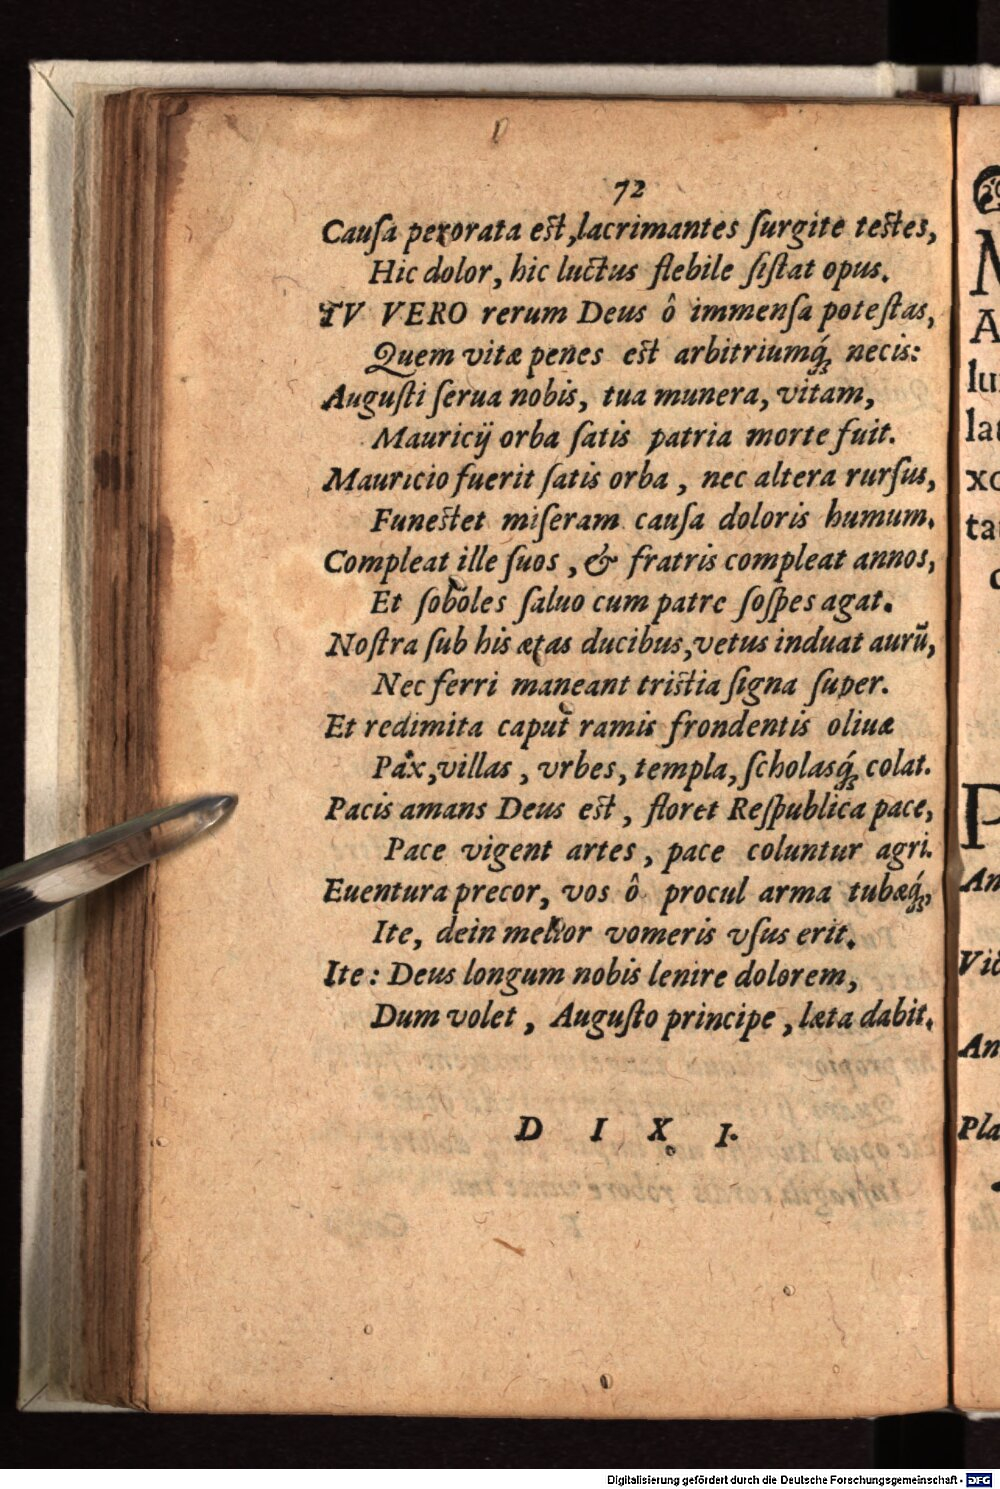 72
Cauſa perorata eſt, lacrimantes ſurgite teſtes,
Hic dolor, hic luctus flebile ſiſtat opus.
TV VERO rerum Deus ô immenſa poteſtas,
Quem vitæ penes eſt arbitriumq́; necis:
Auguſti ſerua nobis, tua munera, vitam,
Mauricij orba ſatis patria morte fuit.
Mauricio fuerit ſatis orba, nec altera rurſus,
Funeſtet miſeram cauſa doloris humum.
Compleat ille ſuos, & fratris compleat annos,
Et ſoboles ſaluo cum patre ſoſpes agat.
Noſtra ſub his ætas ducibus, vetus induat aurū,
Nec ferri maneant triſtia ſigna ſuper.
Et redimita caput ramis frondentis oliuæ
Pax, villas, vrbes, templa, ſcholasq́; colat.
Pacis amans Deus eſt, floret Reſpublica pace,
Pace vigent artes, pace coluntur agri.
Euentura precor, vos ô procul arma tubæq́;,
Ite, dein melior vomeris vſus erit.
Ite: Deus longum nobis lenire dolorem,
Dum volet, Auguſto principe, læta dabit.
D I X I.
M
A
lu
lat
xo
ta
P
An
Vic
An
Pla
Digitalisierung gefördert durch die Deutsche Forschungsgemeinschaft - DFG